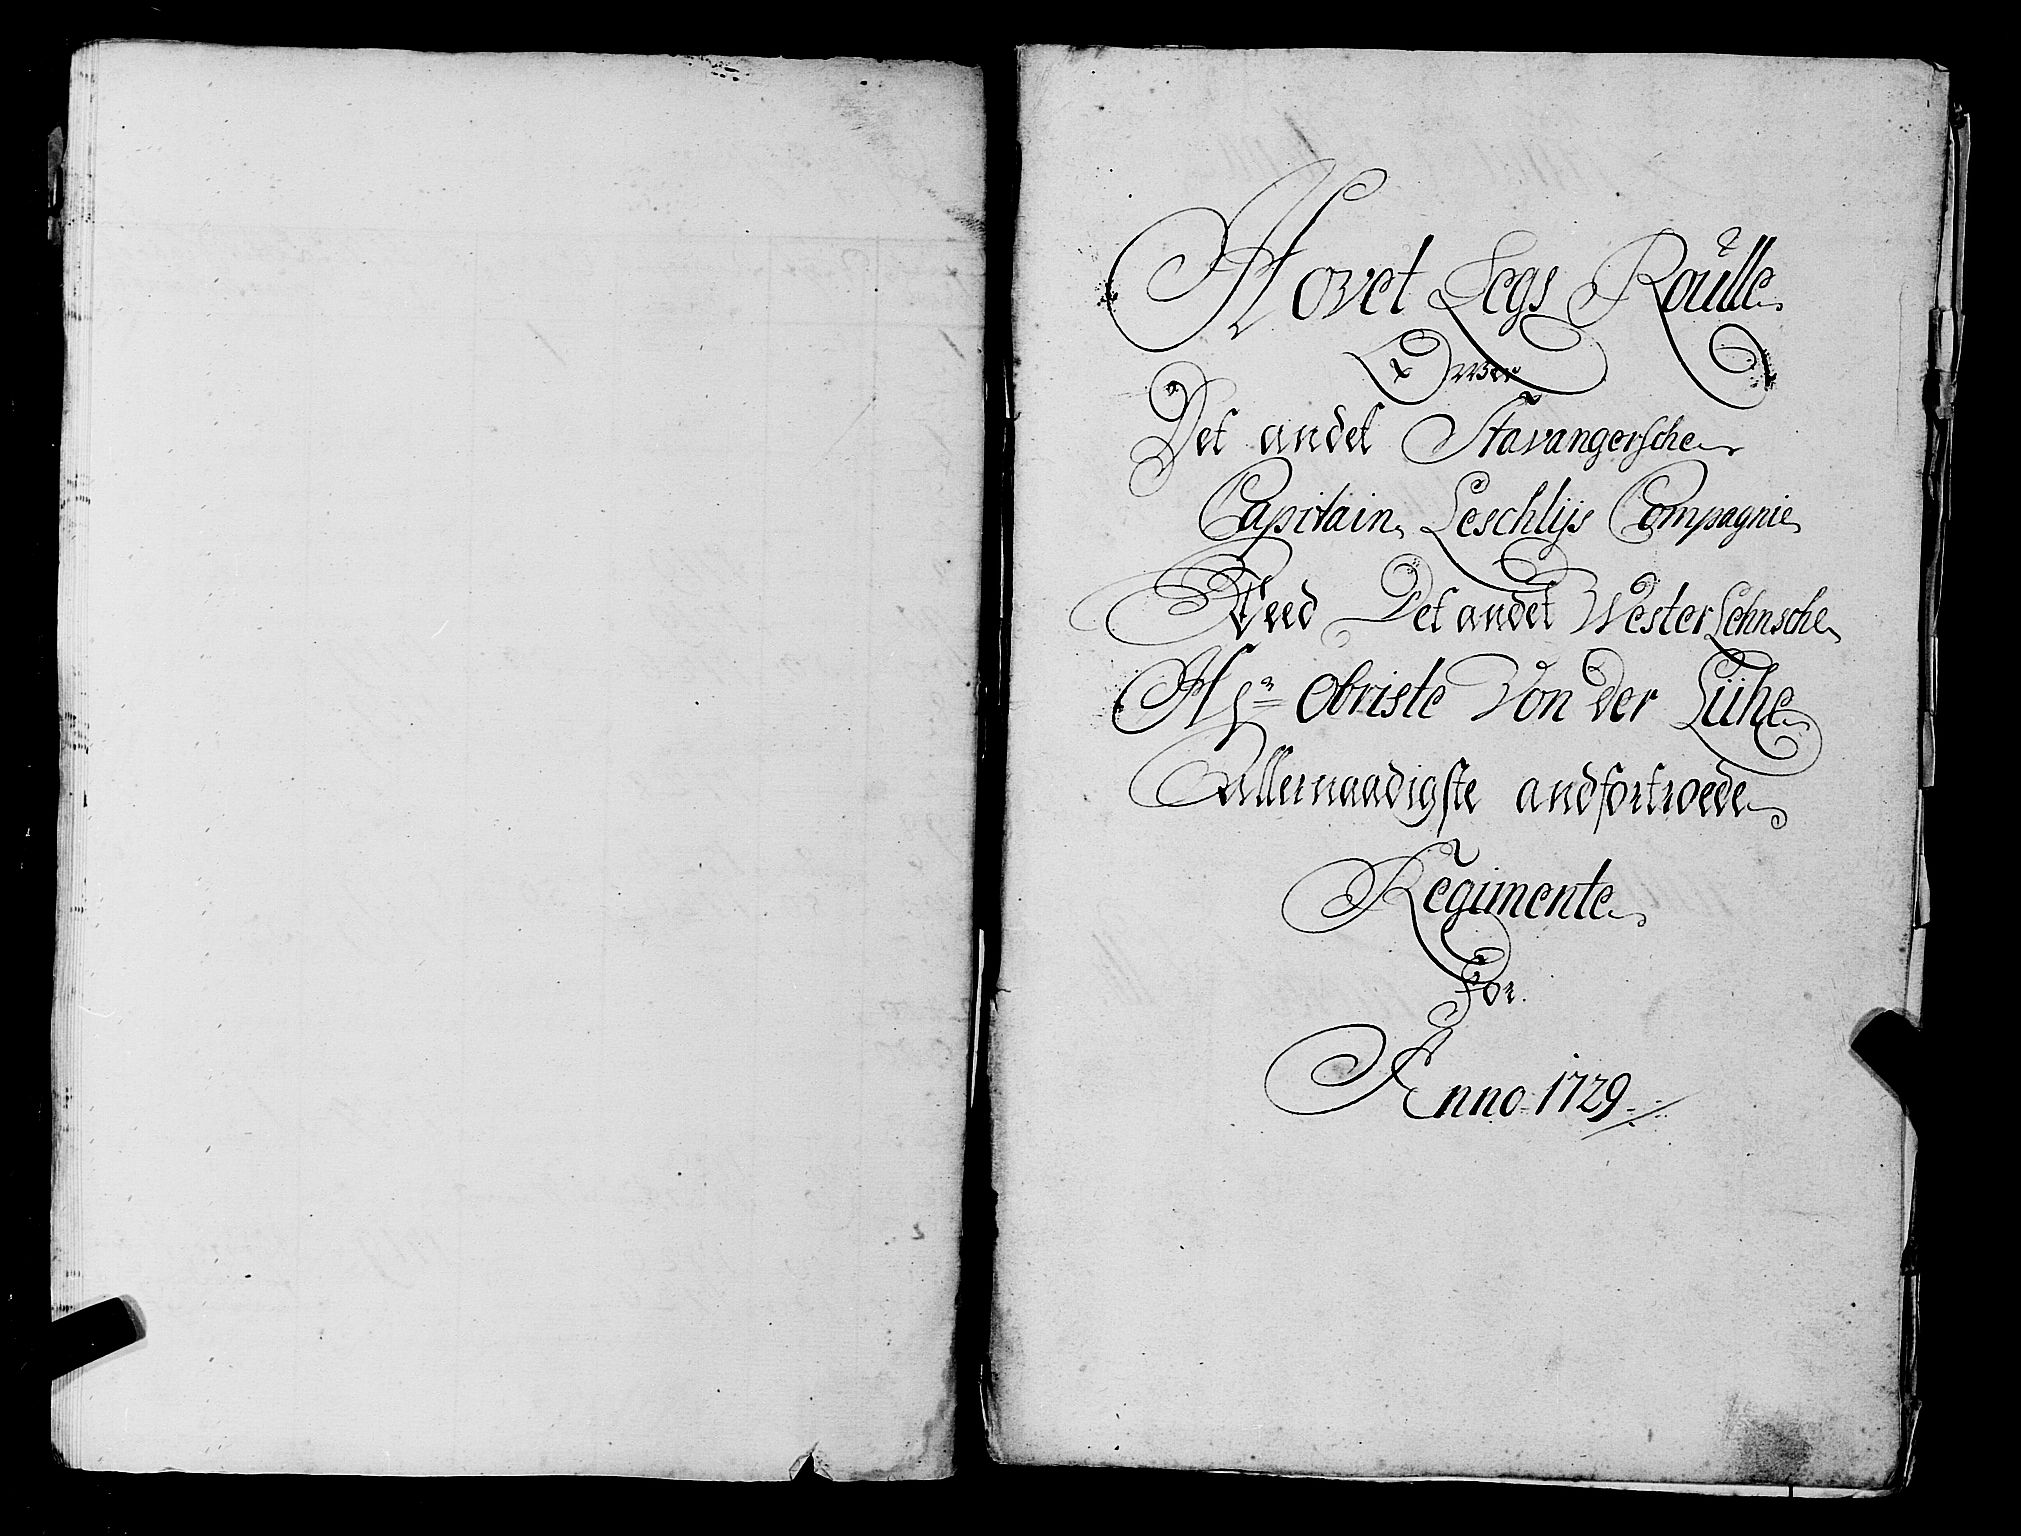 Hovet Legs Roülle
Over
Det andet Stavangersche
Capitain Leschlÿs Compagnie
Veed Det andet Wester Lehnsche
Hr. Obriste Von der Lühe
Allernaadigste andfortroede
Regimente
For.
Anno 1729